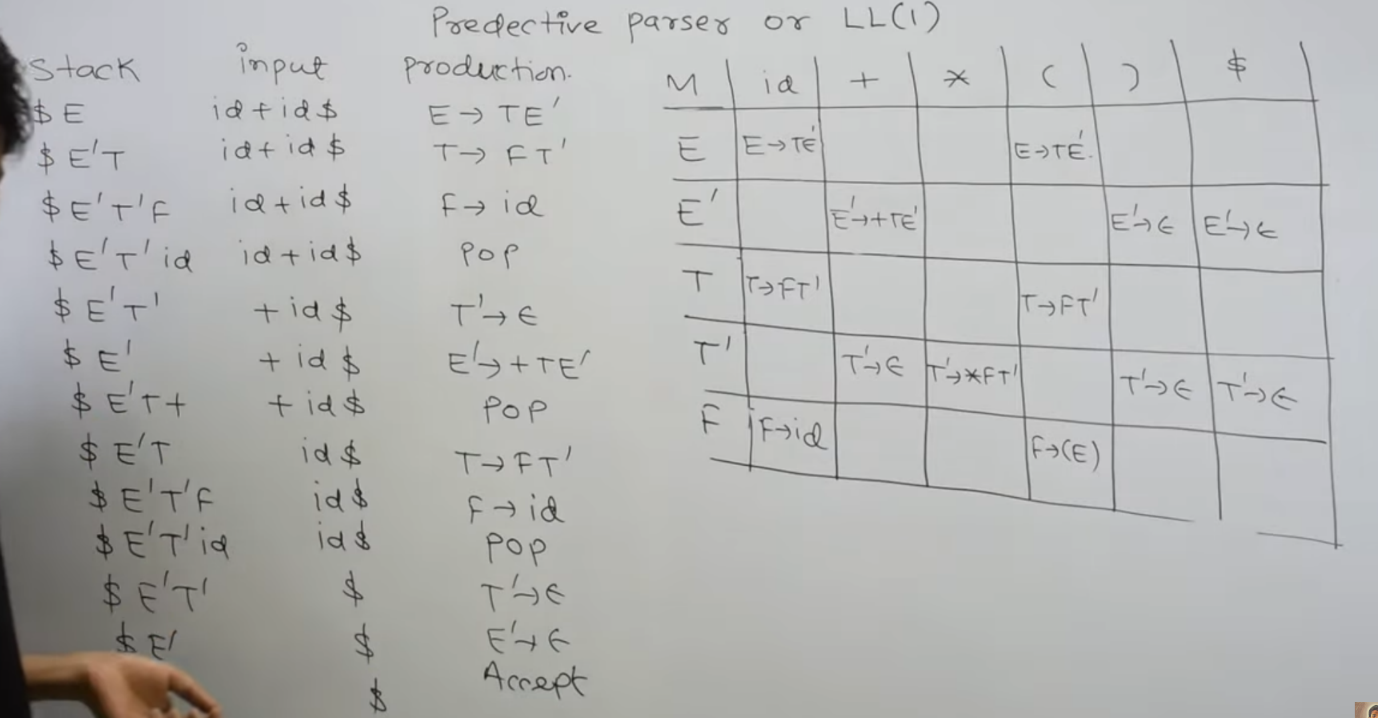 Predective parser or LL(1)
Stack input production.
$ E id + id $ E → TE'
$ E'T id + id $ T → FT'
$ E'T'F id + id $ F → id
$ E'T'id id + id $ POP
$ E'T' + id $ T' → ϵ
$ E' + id $ E' → +TE'
$ E'T+ + id $ POP
$ E'T id $ T → FT'
$ E'T'F id $ F → id
$ E'T'id id $ POP
$ E'T' $ T' → ϵ
$ E' $ E' → ϵ
$ Accept
M id + * ( ) $
E E → TE' E → TE'.
E' E' → +TE' E' → ϵ E' → ϵ
T T → FT' T → FT'
T' T' → ϵ T' → *FT' T' → ϵ T' → ϵ
F F → id F → (E)